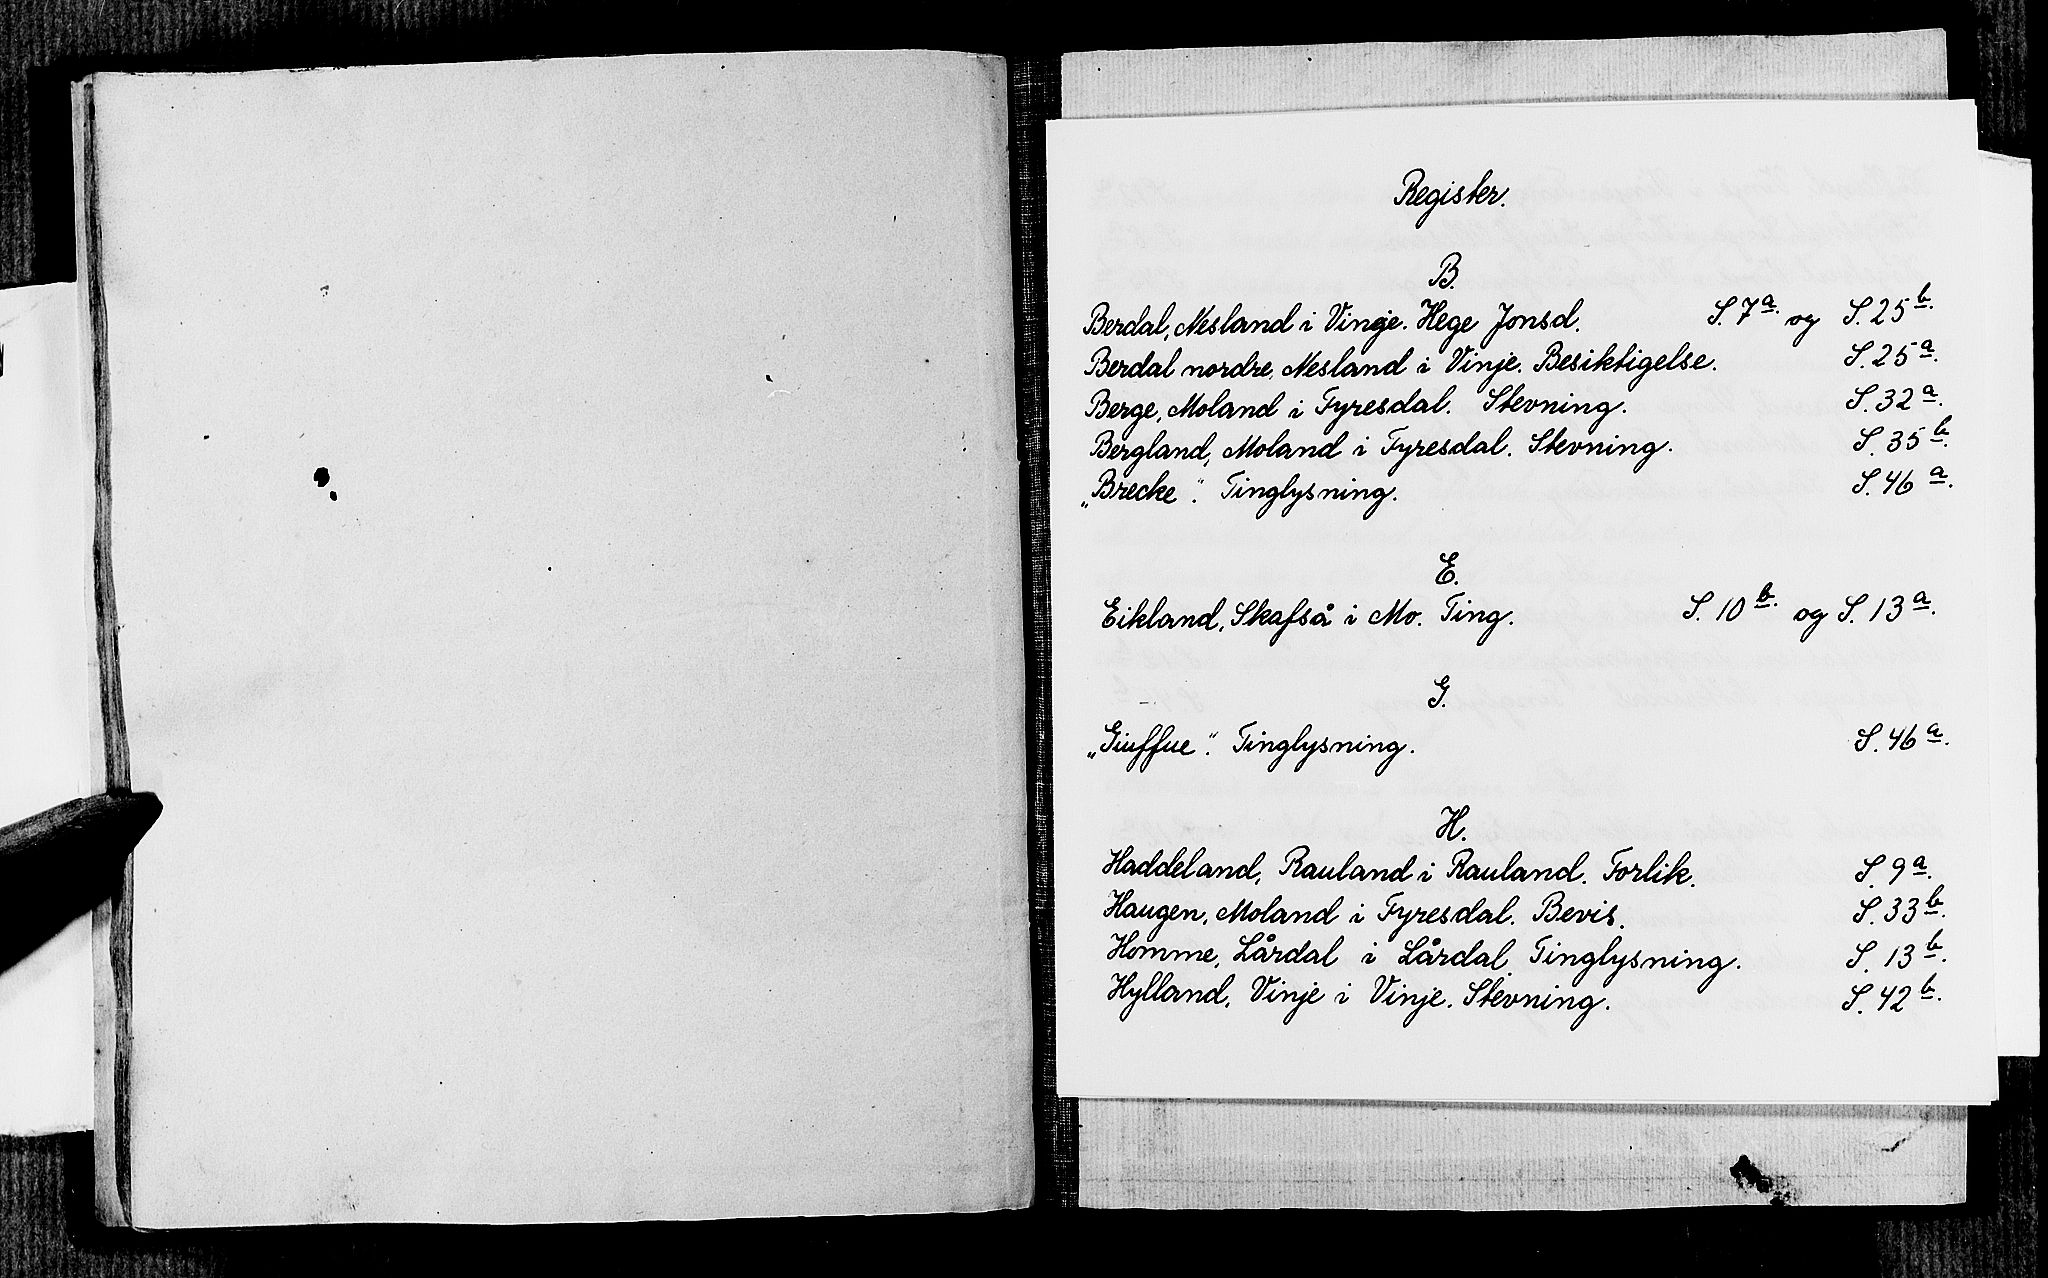 Register.
B.
Berdal, Nesland i Vinje. Hege Jonsd. S. 7a. og S. 25b.
Berdal nordre, Nesland i Vinje. Besiktigelse. S. 25a.
Berge, Moland i Fyresdal. Stevning. S. 32a.
Bergland, Moland i Fyresdal. Stevning. S. 35b.
„Brecke”. Tinglysning. S. 46a.
E.
Eikland, Skafså i Mo. Ting. S. 10b. og S. 13a.
G.
„Giuffue”. Tinglysning. S. 46a.
H.
Haddeland, Rauland i Rauland. Forlik. S. 9a.
Haugen, Moland i Fyresdal. Bevis. S. 33b.
Homme, Lårdal i Lårdal. Tinglysning. S. 13b.
Hylland, Vinje i Vinje. Stevning. S. 42b.